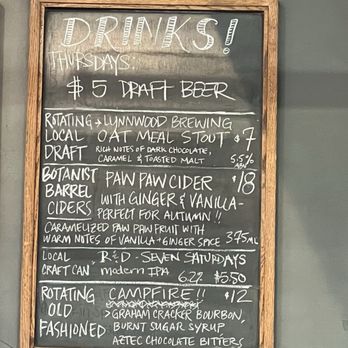 DRINKS!
THURSDAYS:
$5 DRAFT BEER
ROTATING LOCAL DRAFT
→ LYNNWOOD BREWING
OATMEAL STOUT $7
RICH NOTES OF DARK CHOCOLATE,
CARAMEL & TOASTED MALT
5.5%
ABV
BOTANIST BARREL CIDERS
PAW PAW CIDER $18
WITH GINGER & VANILLA -
PERFECT FOR AUTUMN !!
CARAMELIZED PAW PAW FRUIT WITH
WARM NOTES OF VANILLA + GINGER SPICE 375ML
LOCAL CRAFT CAN
R&D - SEVEN SATURDAYS
modern IPA 6.2% $5.50
ROTATING OLD FASHIONED
CAMPFIRE!! $12
> GRAHAM CRACKER BOURBON,
BURNT SUGAR SYRUP
AZTEC CHOCOLATE BITTERS